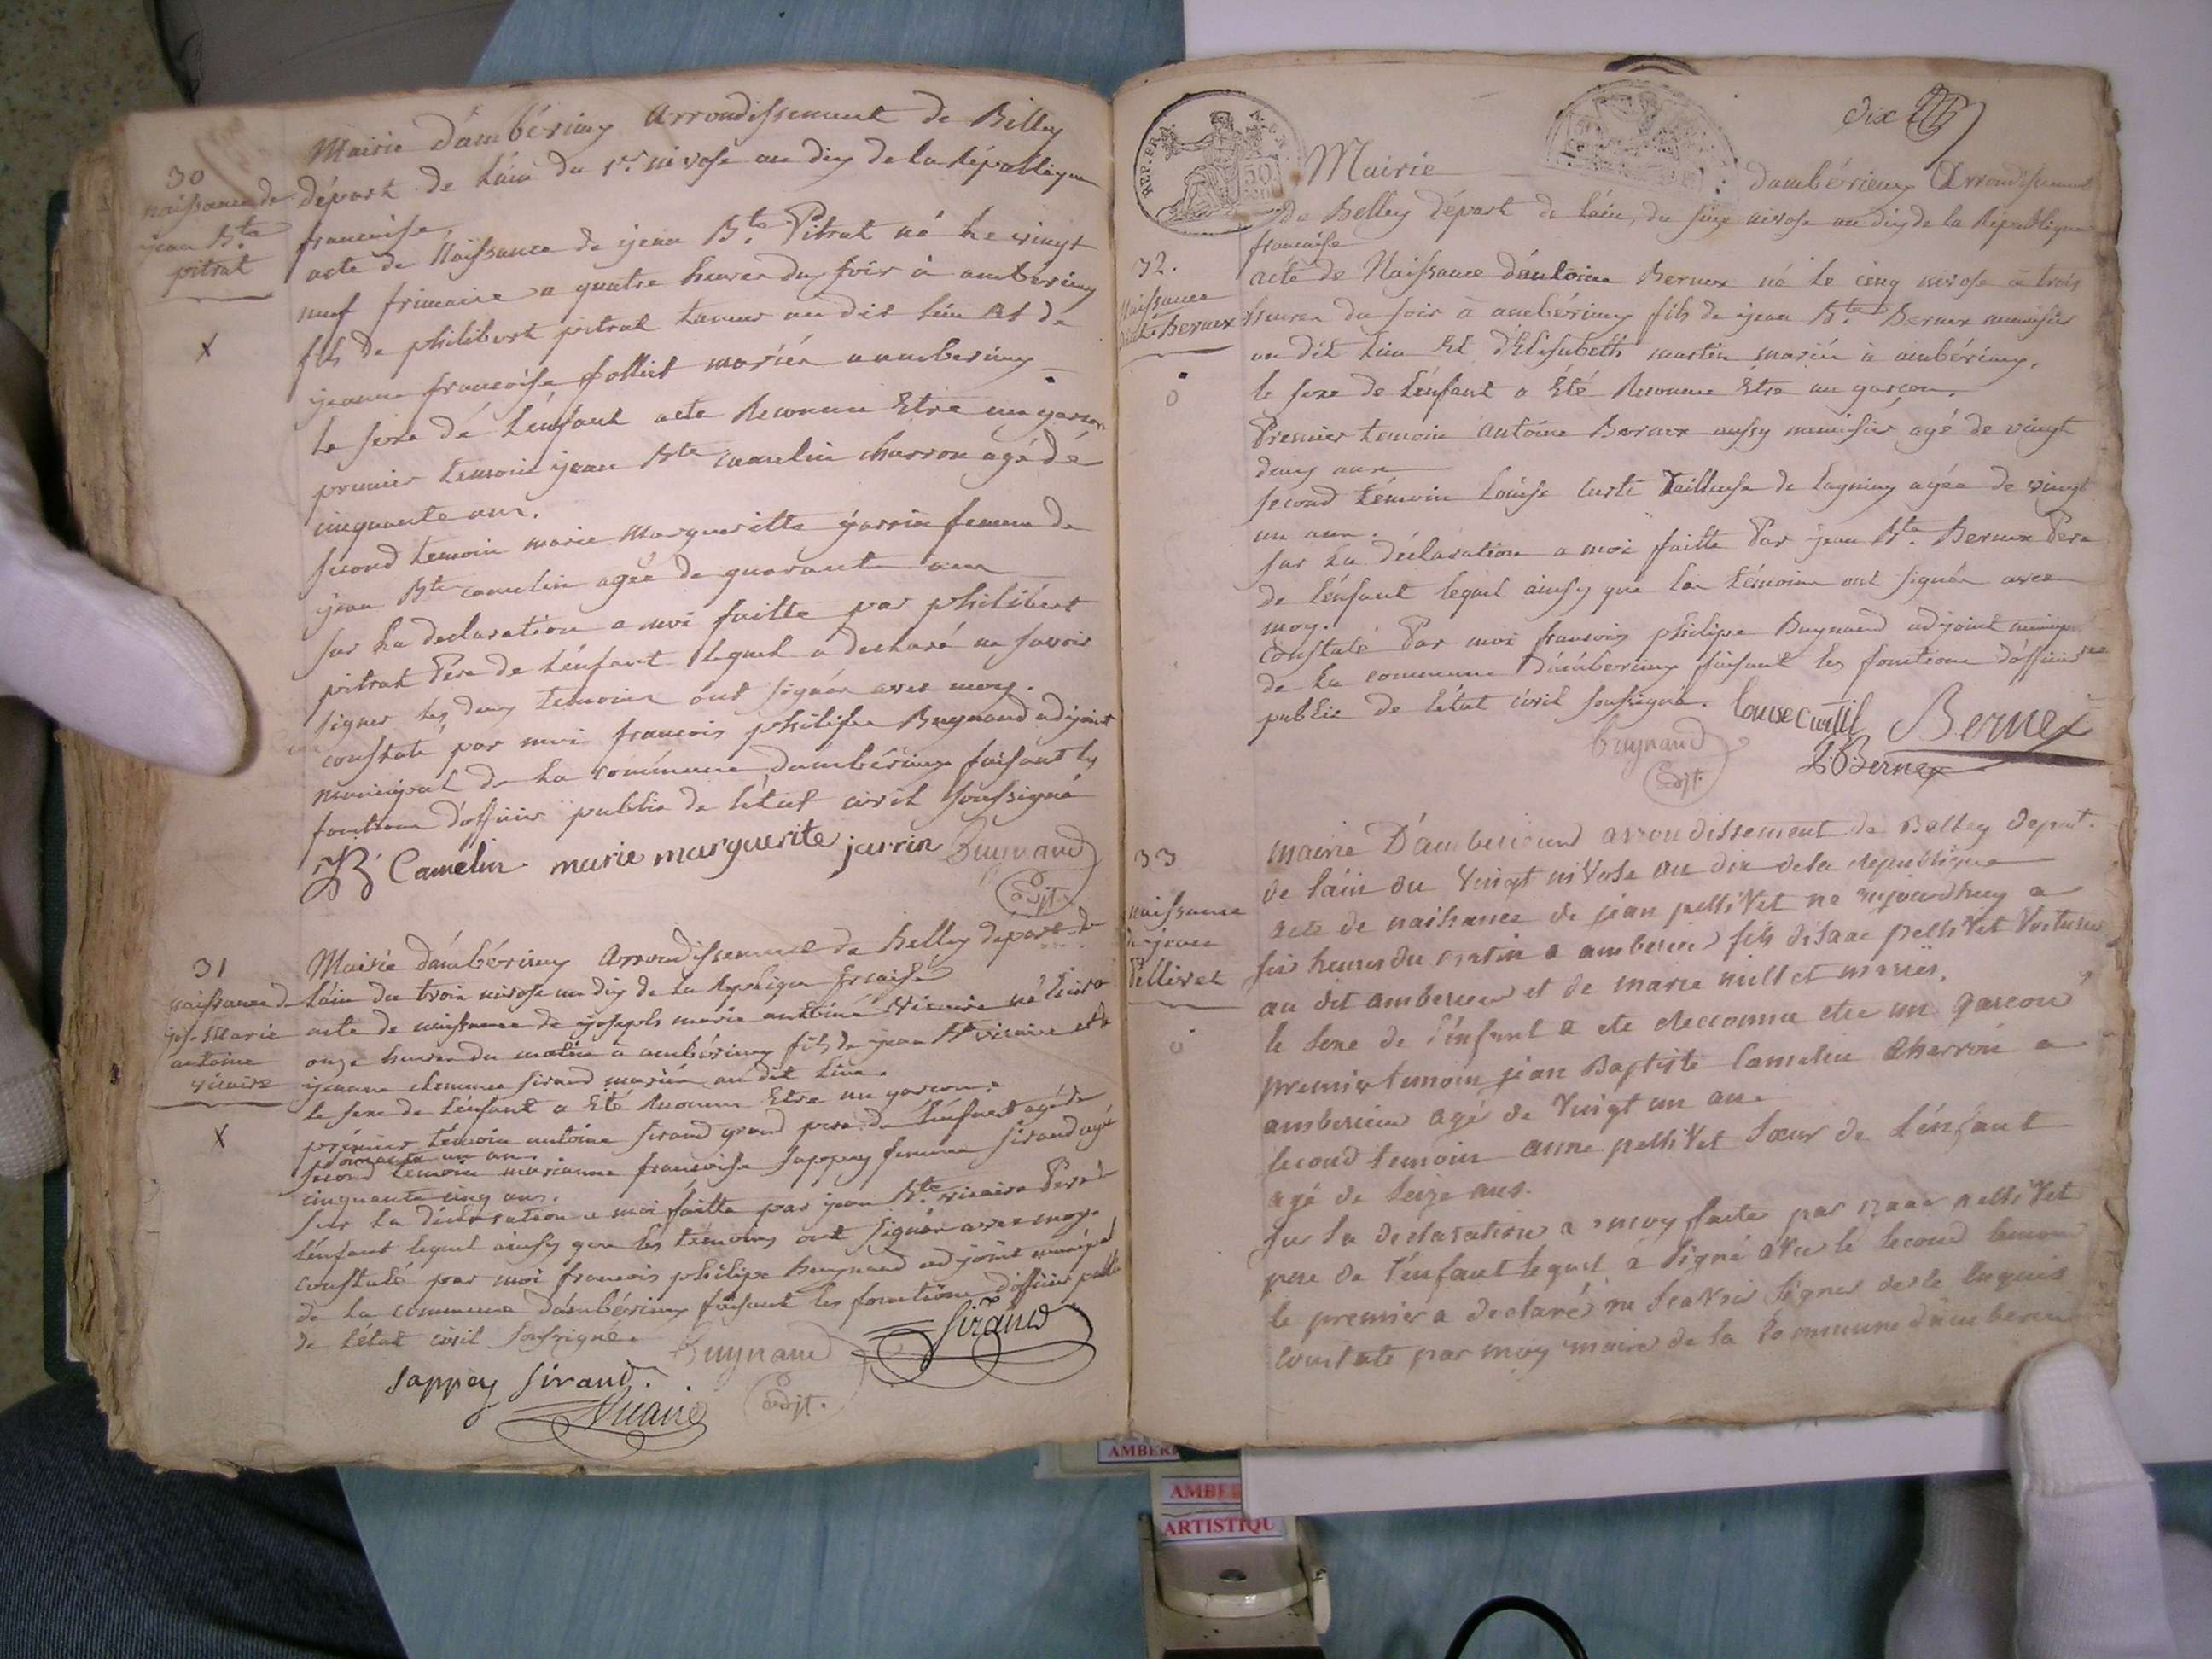 30
naissance de
jean Bte
pitrat
X
Mairie d'ambérieux Arrondissement de Belley
départ de L'ain du 1er nivose an dix de la République
francaise
acte de Naissance de jean Bte Pitrat né Le vingt
neuf frimaire a quatre heures du soir à ambérieux
fils de philibert pitrat tanneur au dit Lieu Et de
jeanne francoise follict mariés a ambérieux
Le sexe dé L'enfant a eté Reconnu Etre un garcon
premier temoin jean Bte camelin charron agé dé
cinquante ans.
second temoin marie Margueritte jarrin femme de
jean Bte camelin agée de quarante ans
sur La declaration a moi faitte par philibert
pitrat Pere de L'énfant Lequel a déclaré ne savoir
signer Les deux temoins ont signés avec moy.
constaté par moi francois philipe Buynand adjoint
municipal de La commune d'ambérieux faisant les
fonctions d'officier public de L'état civil soussigné
JB Camelin marie marguerite jarrin Buynand
adjt.
31
naissance de
jph Marie
antoine
vicaire
X
Mairie d'ambérieux Arrondissement de Belley départ de
L'ain du trois nivose an dix de La
acte de naissance de joseph marie antoine Vicaire né
onze heures du matin à ambérieux fils de jean Bte vicaire et de
jeanne sirand mariés au dit Lieu.
Le sexe de L'enfant a Eté Reconnu Etre un garcon.
prémier témoin antoine sirand grand pere de L'énfant agé de
soixante un ans.
second témoin marianne francoise sappey femme sirand agé
cinquante cinq ans.
sur La déclaration a moi faitte par jean Bte vicaire Pere de
L'énfant lequel ainsy que les témoins ont signés avec moy.
constaté par moi francois philipe Buynand adjoint municipal
de La commune d'ambérieux faisant les fonctions d'officier public
de L'état civil soussigné.
Buynand Sirand
sappey Sirand.
adjt.
Vicaire
REP. FRA.
50
dix
Mairie d'ambérieux Arrondissement
de Belley départ de L'ain, du six nivose an dix de la République
francaise
32.
Naissance
Bernex
0
acte de Naissance d'antoine Bernex né le cinq nivose à trois
heures du soir à ambérieux fils de jean Bte Bernex menuisier
au dit Lieu Et d'Elisabeth martin mariés à ambérieux.
le sexe de L'énfant a Eté Reconnu Etre un garcon.
Premier temoin antoine Bernex aussy menuisier agé de vingt
deux ans
second témoin Louise Tailleuse de Lagnieu agée de vingt
un ans.
sur La déclaration a moi faitte Par jean Bte Bernex Pere
de L'énfant lequel ainsy que les témoins ont signés avec
moy.
constaté Par moi francois philipe Buynand adjoint
de La commune d'ambérieux faisant les fonctions d'officier
public de l'état civil soussigné. Bernex
Buynand
adjt.
Bernex
33
naissance
de jean
Pellivet
0
mairie D'amberieux arrondissement de Belley depart.
de l'ain du Vingt niVose an dix de la republique
acte de naissance de jean pelliVet né aujourdhuy a
six heures du matin a amberieu fils d'isaac pelliVet Voiturier
au dit amberieu et de marie millet mariés.
le sexe de l'énfant a eté reconnu etre un garcon
premier temoin jean Baptiste Camelin charron a
amberieu agé de Vingt un ans
second temoin anne pelliVet sœur de L'énfant
agé de seize ans.
sur la declaration a moy faite par isaac pelliVet
pere de l'énfant lequel a signé avec le second temoin
le premier a declaré ne scavoir signer de ce enquis
constaté par moy maire de la commune d'amberieu
AMBER
AMBE
ARTISTIQU